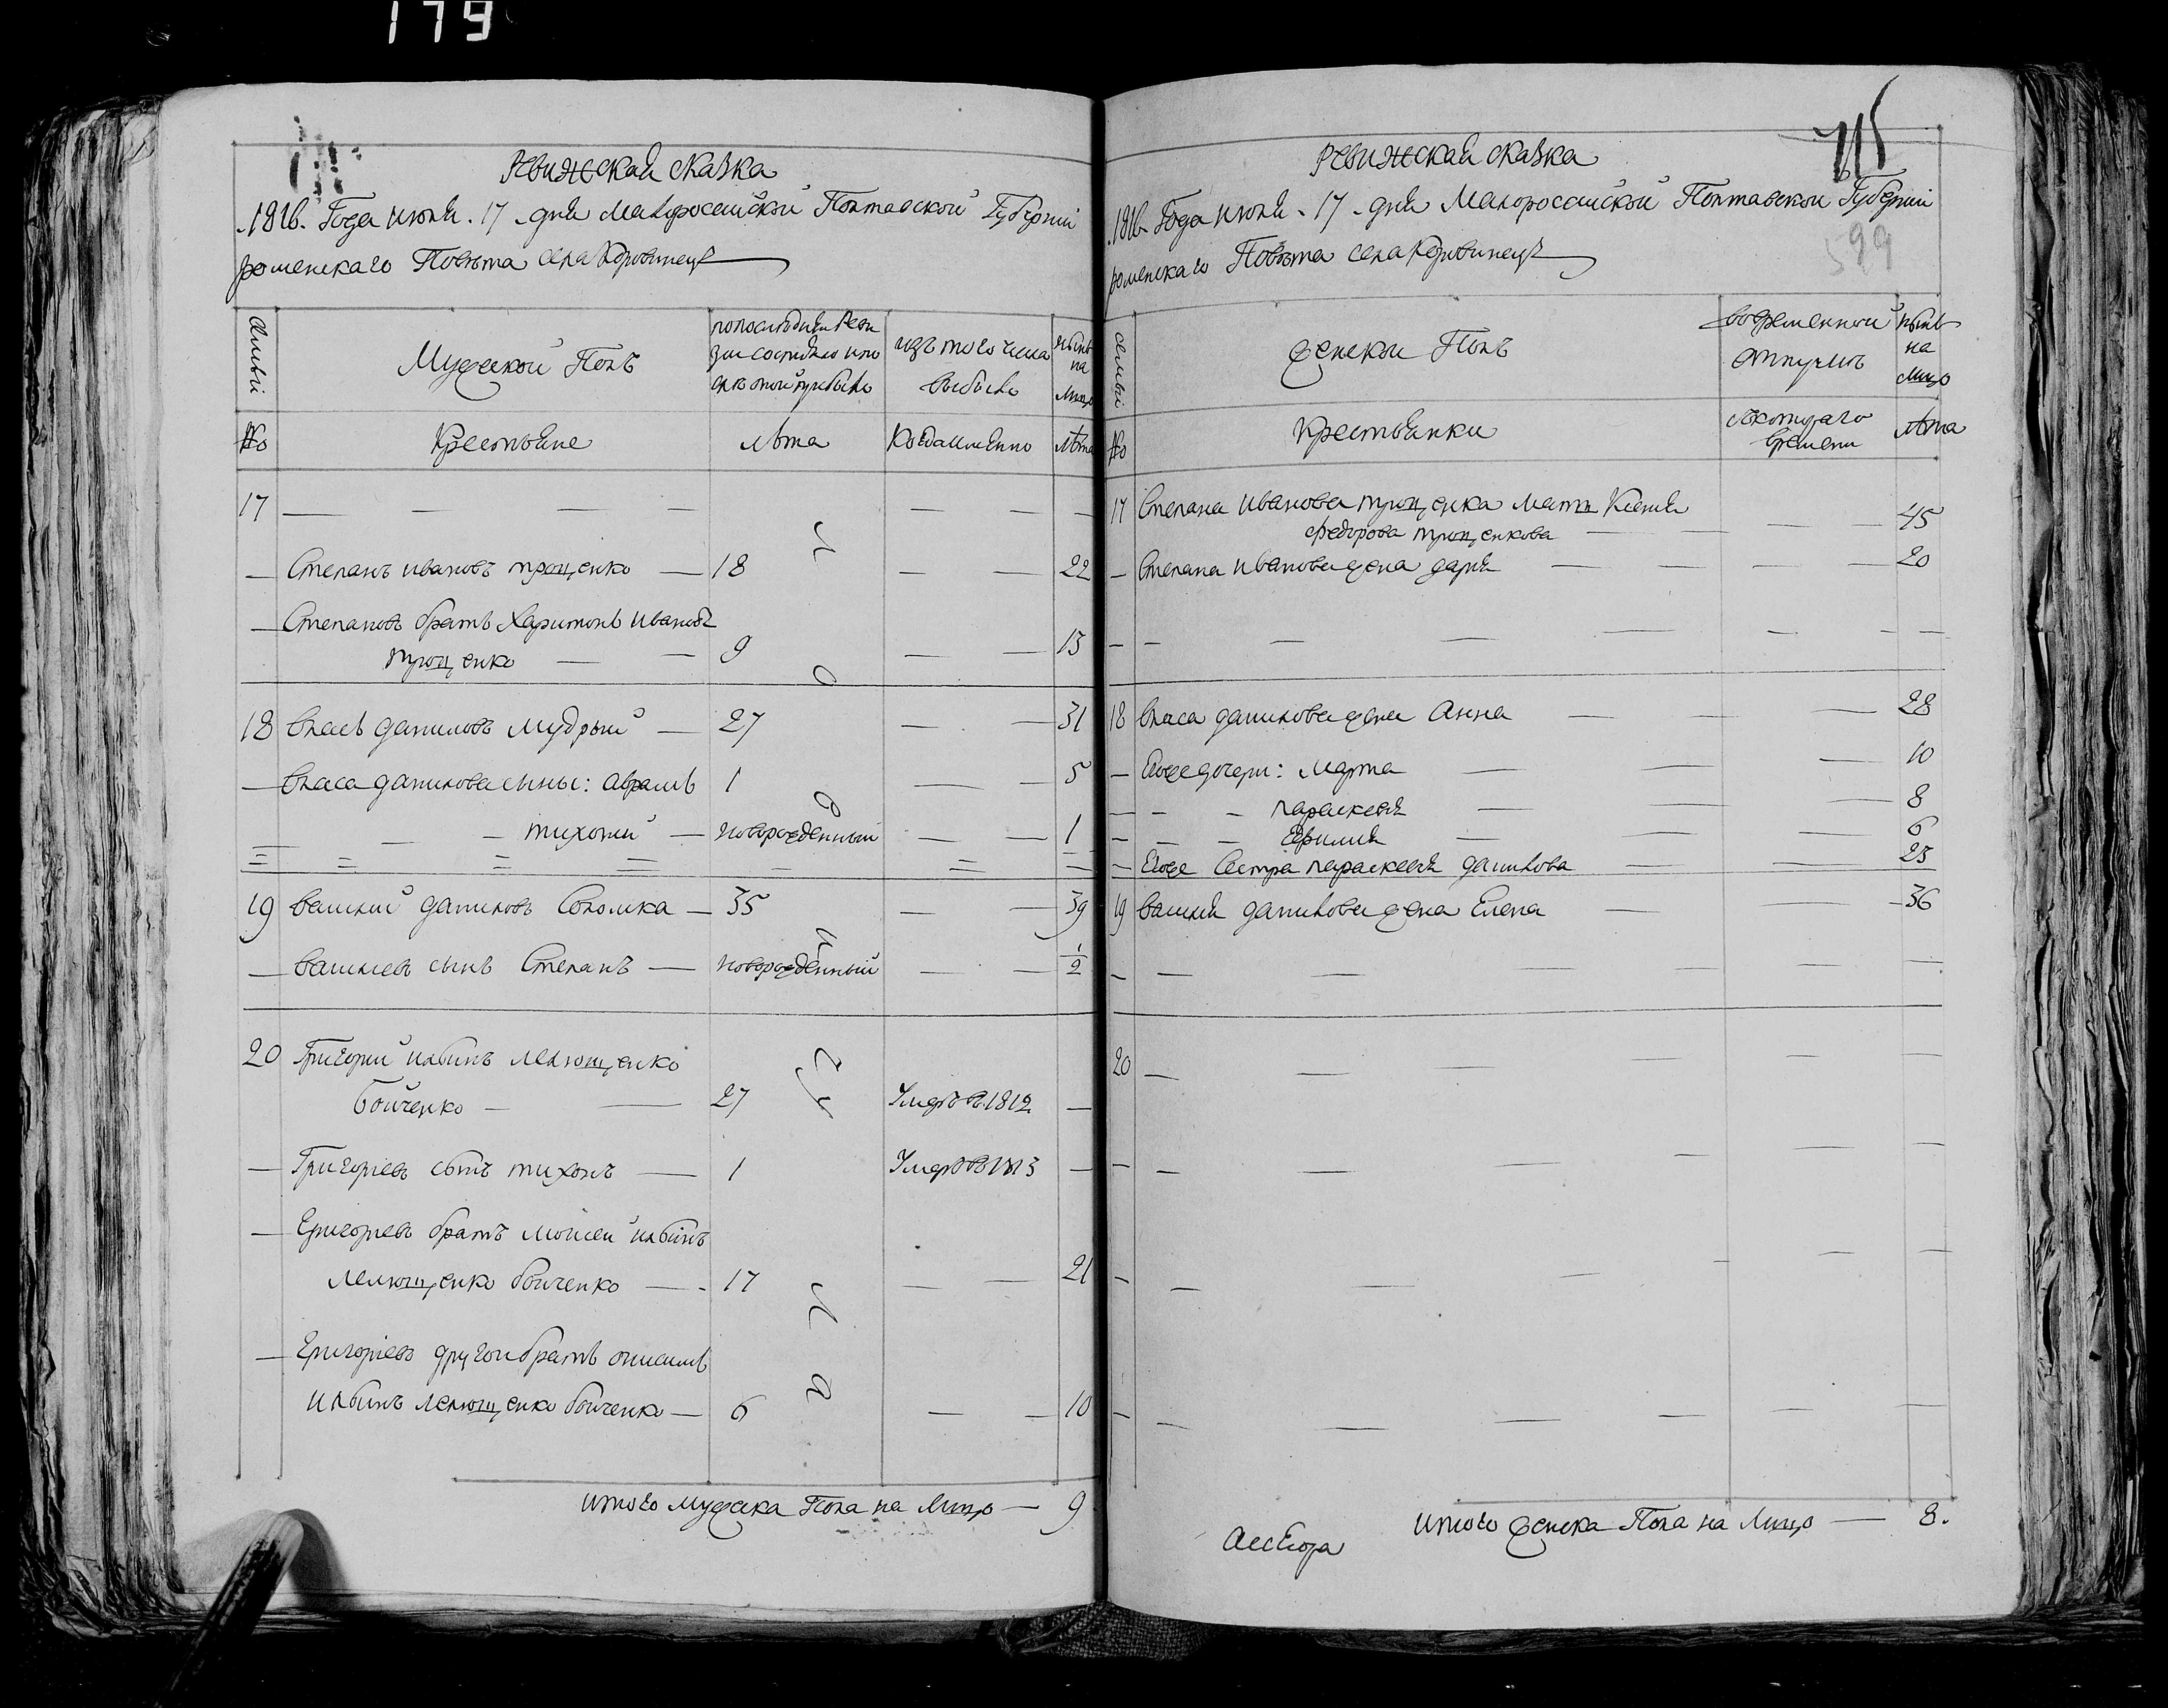 179
Ревижская сказка
1816. Года июня. 17 дня Малороссийской Полтавской Губернїи
роменскаго Повѣта села Коровинецъ
семьи
Мужеской Полъ
попоследней Реви
зіи состояло или
после оной прибыло
изъ того числа
выбыло
нынѣ
на
лицо
№
Крестьяне
лѣта
Когдаименно
лѣта
17
Степанъ ивановъ троценко — 18 — — 22
Степановъ братъ Харитонъ Ивановъ
троценко — — 9 — — 13
18 власъ даниловъ Мудрый — 27 — — 31
— власа данилова сыны: Аврамъ 1 — — 5
— — — тихонъ — новорожденный — — 1
19 василий даниловъ Соломка — 35 — — 39
— василиевъ сынъ Степанъ — новорожденный — — 1/2
20 Григорий ильинъ Лелющенко
бойченко — — 27 Умеръ в. 1812 —
— Григориевъ сынъ тихонъ — 1 Умеръ в 1813 —
— Григориевъ братъ Моисей ильинъ
Лелющенко бойченко — 17 — — 21
— Григориевъ другой братъ онисимъ
ильинъ лелющенко бойченко — 6 — — 10
итого мужеска Пола на Лицо — 9
715
Ревижская сказка
1816 Года июня. 17 дня Малороссийской Полтавской Губернїи
599
роменскаго Повѣта села Коровинецъ
семьи
Женской Полъ
вовременной
отлучкѣ
нынѣ
на
лицо
№
Крестьянки
скотораго
времени
лѣта
17 Степана иванова троценка мать Ксения
федорова троценкова — — — 45
— Степана иванова жена дария — — — — 20
18 власа данилова жена Анна — — — 28
— Егоже дочери: Марта — — — 10
— — — параскевия — — — 8
— — — Ефимия — — — 6
— Егоже Сестра параскевия данилова — — 23
19 василия данилова жена Елена — — 36
20
итого женска Пола на Лицо — 8.